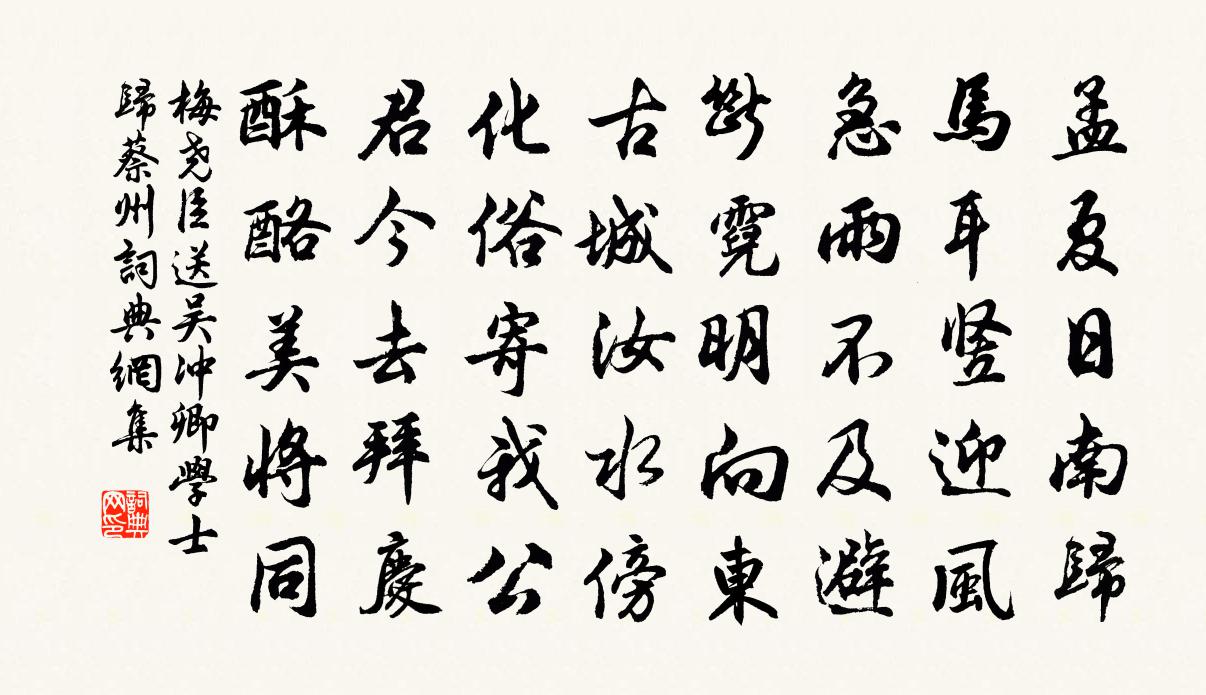 孟夏日南歸
馬耳豎迎風
急雨不及避
斷霓明向東
古城汝水傍
化俗寄我公
君今去拜慶
酥酪美將同
梅堯臣送吴冲卿學士
歸蔡州詞典網集
詞典网印